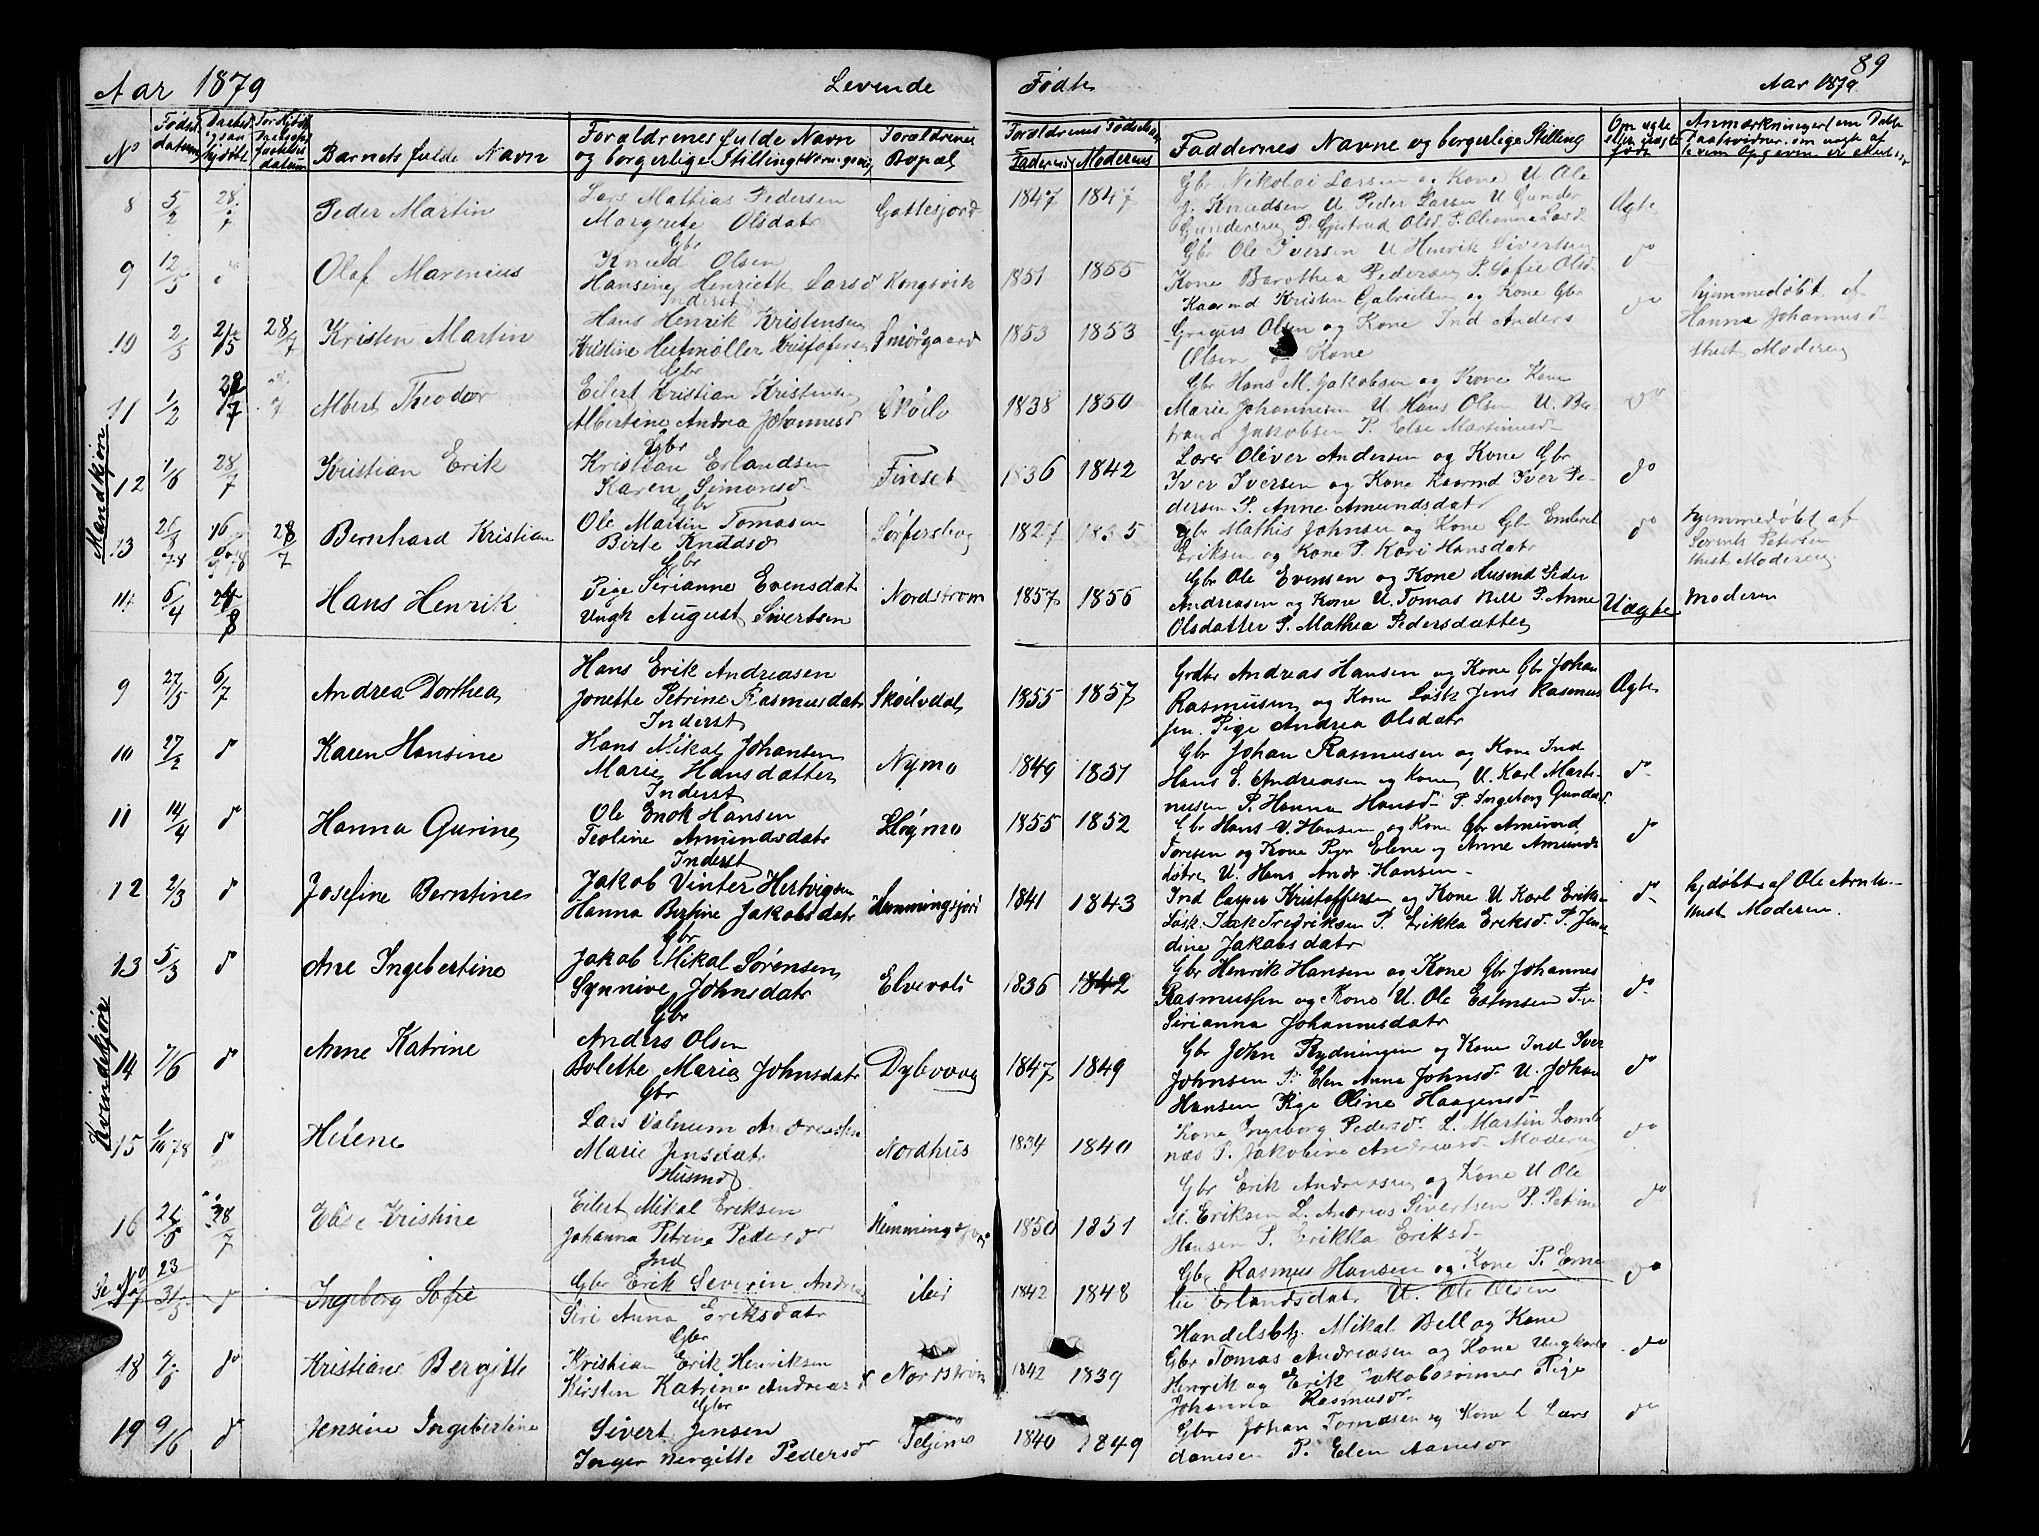 89
Aar 1879 Levende Fødte Aar 1879
No Fødsels datum Barnets fulde Navn Forældrenes fulde Navn og borgerlige Stilling Forældrenes Bopæl Forældrenes Fødselsaar Faderens Moderens Faddernes Navne og borgerlige Stilling Om ægte eller uægte født
Mandkjøn
8 5/2 28/7 Peder Martin
Lars Mathias Pedersen
Margrete Olsdatr
Gbr
1847 1847
Gbr Nikolai Larsen og Kone U. Ole
J. Knudsen U. Peder Larsen U Gunder
Gundersen P. Gjertrud Olsd P. Oleanna Larsd
Ægte
9 12/5 do Olaf Marenius
Knud Olsen
Hansine Henriette Larsd
Inderst
Kongsvik
1851 1855
Gbr Ole Iversen U Henrik Sivertsen
Kone Barothea Pedersen P. Sofie Olsd
do
10 2/5 21/5 28/7 Kristen Martin
Hans Henrik Kristensen
Gbr
Smørgaard
1853 1853
Kaarmd Kristen Gabrielsen og Kone Gbr
Gregers Olsen og Kone Ind Anders
Olsen og Kone
do
hjemmedøbt af
Hanna Johannesd
Hust Moderen
11 1/2 28/7 Albert Theodor
Eilert Kristian Kristensen
Albertine Andrea Johannesd
Gbr
1838 1850
Gbr Hans M. Jakobsen og Kone Kone
Marie Johannesen U. Hans Olsen U. Ber
trand Jakobsen P. Else Martinusd
do
12 1/6 28/7 Kristian Erik
Kristian Erlandsen
Karen Simonsd
Gbr
Finset
1836 1842
Lærer Oliver Andersen og Kone Gbr
Iver Iversen og Kone Kaarmd Iver Pe-
dersen P. Anne Amundsdatr
do
13 28/7 Bernhard Kristian
Ole Martin Tomasen
Birte Knudsd
Gbr
Sørforsbog
1827 1835
Gbr Mathis Johnsen og Kone Gbr Embret
Eriksen og Kone P. Kari Hansdatr
do
hjemmedøbt af
Petersen
Hust Moderen
14 6/4 24/8 Hans Henrik
Pige Sirianne Evensdatr
Ungk August Sivertsen
Nordstrøm
1857 1856
Gbr Ole Evensen og Kone Husmd Peder
Andreasen og Kone U. Tomas Bell P. Anne
Olsdatter P. Mathea Pedersdatter
Uægte
Moderen
Kvindekjøn
9 27/5 6/7 Andrea Dorthea
Hans Erik Andreasen
Jonette Petrine Rasmusdatr
Inderst
Skøilvdal
1855 1857
Grdbr Andreas Hansen og Kone Gbr Johan
Rasmusen og Kone Løsk Jens Rasmus
sen. Pige Andrea Olsdatr
Ægte
10 27/2 do Karen Hansine
Hans Mikal Johansen
Marie Hansdatter
Inderst
Nymo
1849 1851
Gbr Johan Rasmusen og Kone Ind
Hans E. Andreasen og Kone U. Karl Marti-
nusen P. Hanna Hansd P. Ingeborg Gundersd
do
11 14/4 do Hanna Gurine
Ole Enok Hansen
Teoline Amundsdatr
Inderst
Løgmo
1855 1852
Gbr Hans V. Hansen og Kone Gbr Amund
Toresen og Kone Piger Elene og Anne Amunds
døtre U. Hans Andr Hansen
do
12 2/3 do Josefine Berntine
Jakob Vinter Hertvigsen
Hanna Birgine Jakobsdatr
Gbr
Hemmingsjord
1841 1843
Ind Casper Kristoffersen og Kone U Karl Eriks
Løsk. Isak Fredriksen P. Erikka Eriksd P. Jen
dine Jakobsdatr
do
hjdøbt af Ole Arnt
Hust Moderen.
13 5/3 do Ane Ingebertine
Jakob Mikal Sørensen
Synnive Johnsdatr
Gbr
Elvevold
1836 1842
Gbr Henrik Hansen og Kone Gbr Johannes
Rasmussen og Kone U. Ole Estensen Pi
Sirianna Johannesdatr
do
14 7/6 do Anne Katrine
Anders Olsen
Bolette Maria Johnsdatr
Gbr
Dybvaag
1847 1849
Gbr John Rydningen og Kone Ind Iver
Johnsen P. Elen Anna Johnsd U. Johan
Hansen Pige Oline Haagensd
do
15 1/10 78 do Helene
Lars Valnum Andreassen
Marie Jensdatr
Husmd
Nordhus
1834 1840
Kone Ingeborg Pedersd L. Martin Lomb
næs P. Jakobine Andreasd Moderen
do
16 28/7 Elise Kristine
Eilert Mikal Eriksen
Johanna Petrine Pedersdr
Ind
Hemmingsjord
1850 1851
Gbr Erik Andreassen og Kone U Ole
M. Eriksen L. Andreas Sivertsen P. Petrine
Hansen P. Erikka Eriksd
do
Se No 23
17 31/5 do Ingeborg Sofie
Gbr Erik Severin Andrea
Siri Anna Eriksdatr
Gbr
1842 1848
Gbr Rasmus Hansen og Kone P. Erne
lie Erlandsdatr U. Ole Olsen
do
18 do Kristiane Bergitte
Kristian Erik Henriksen
Kirsten Katrine Andreasd
Gbr
Nordstrøm
1842 1839
Handelsbtj. Mikal Bell og Kone
Gbr Tomas Andreasen og Kone Ungkarle
Henrik og Erik Jakobssønner Pige
Johanna Rasmusdr
do
19 9/6 do Jensine Ingebertine
Sivert Jensen
Inger Bergitte Pedersdr
1840 1849
Gbr Johan Tomasen og Kone L Lars
danesen P. Elen
do